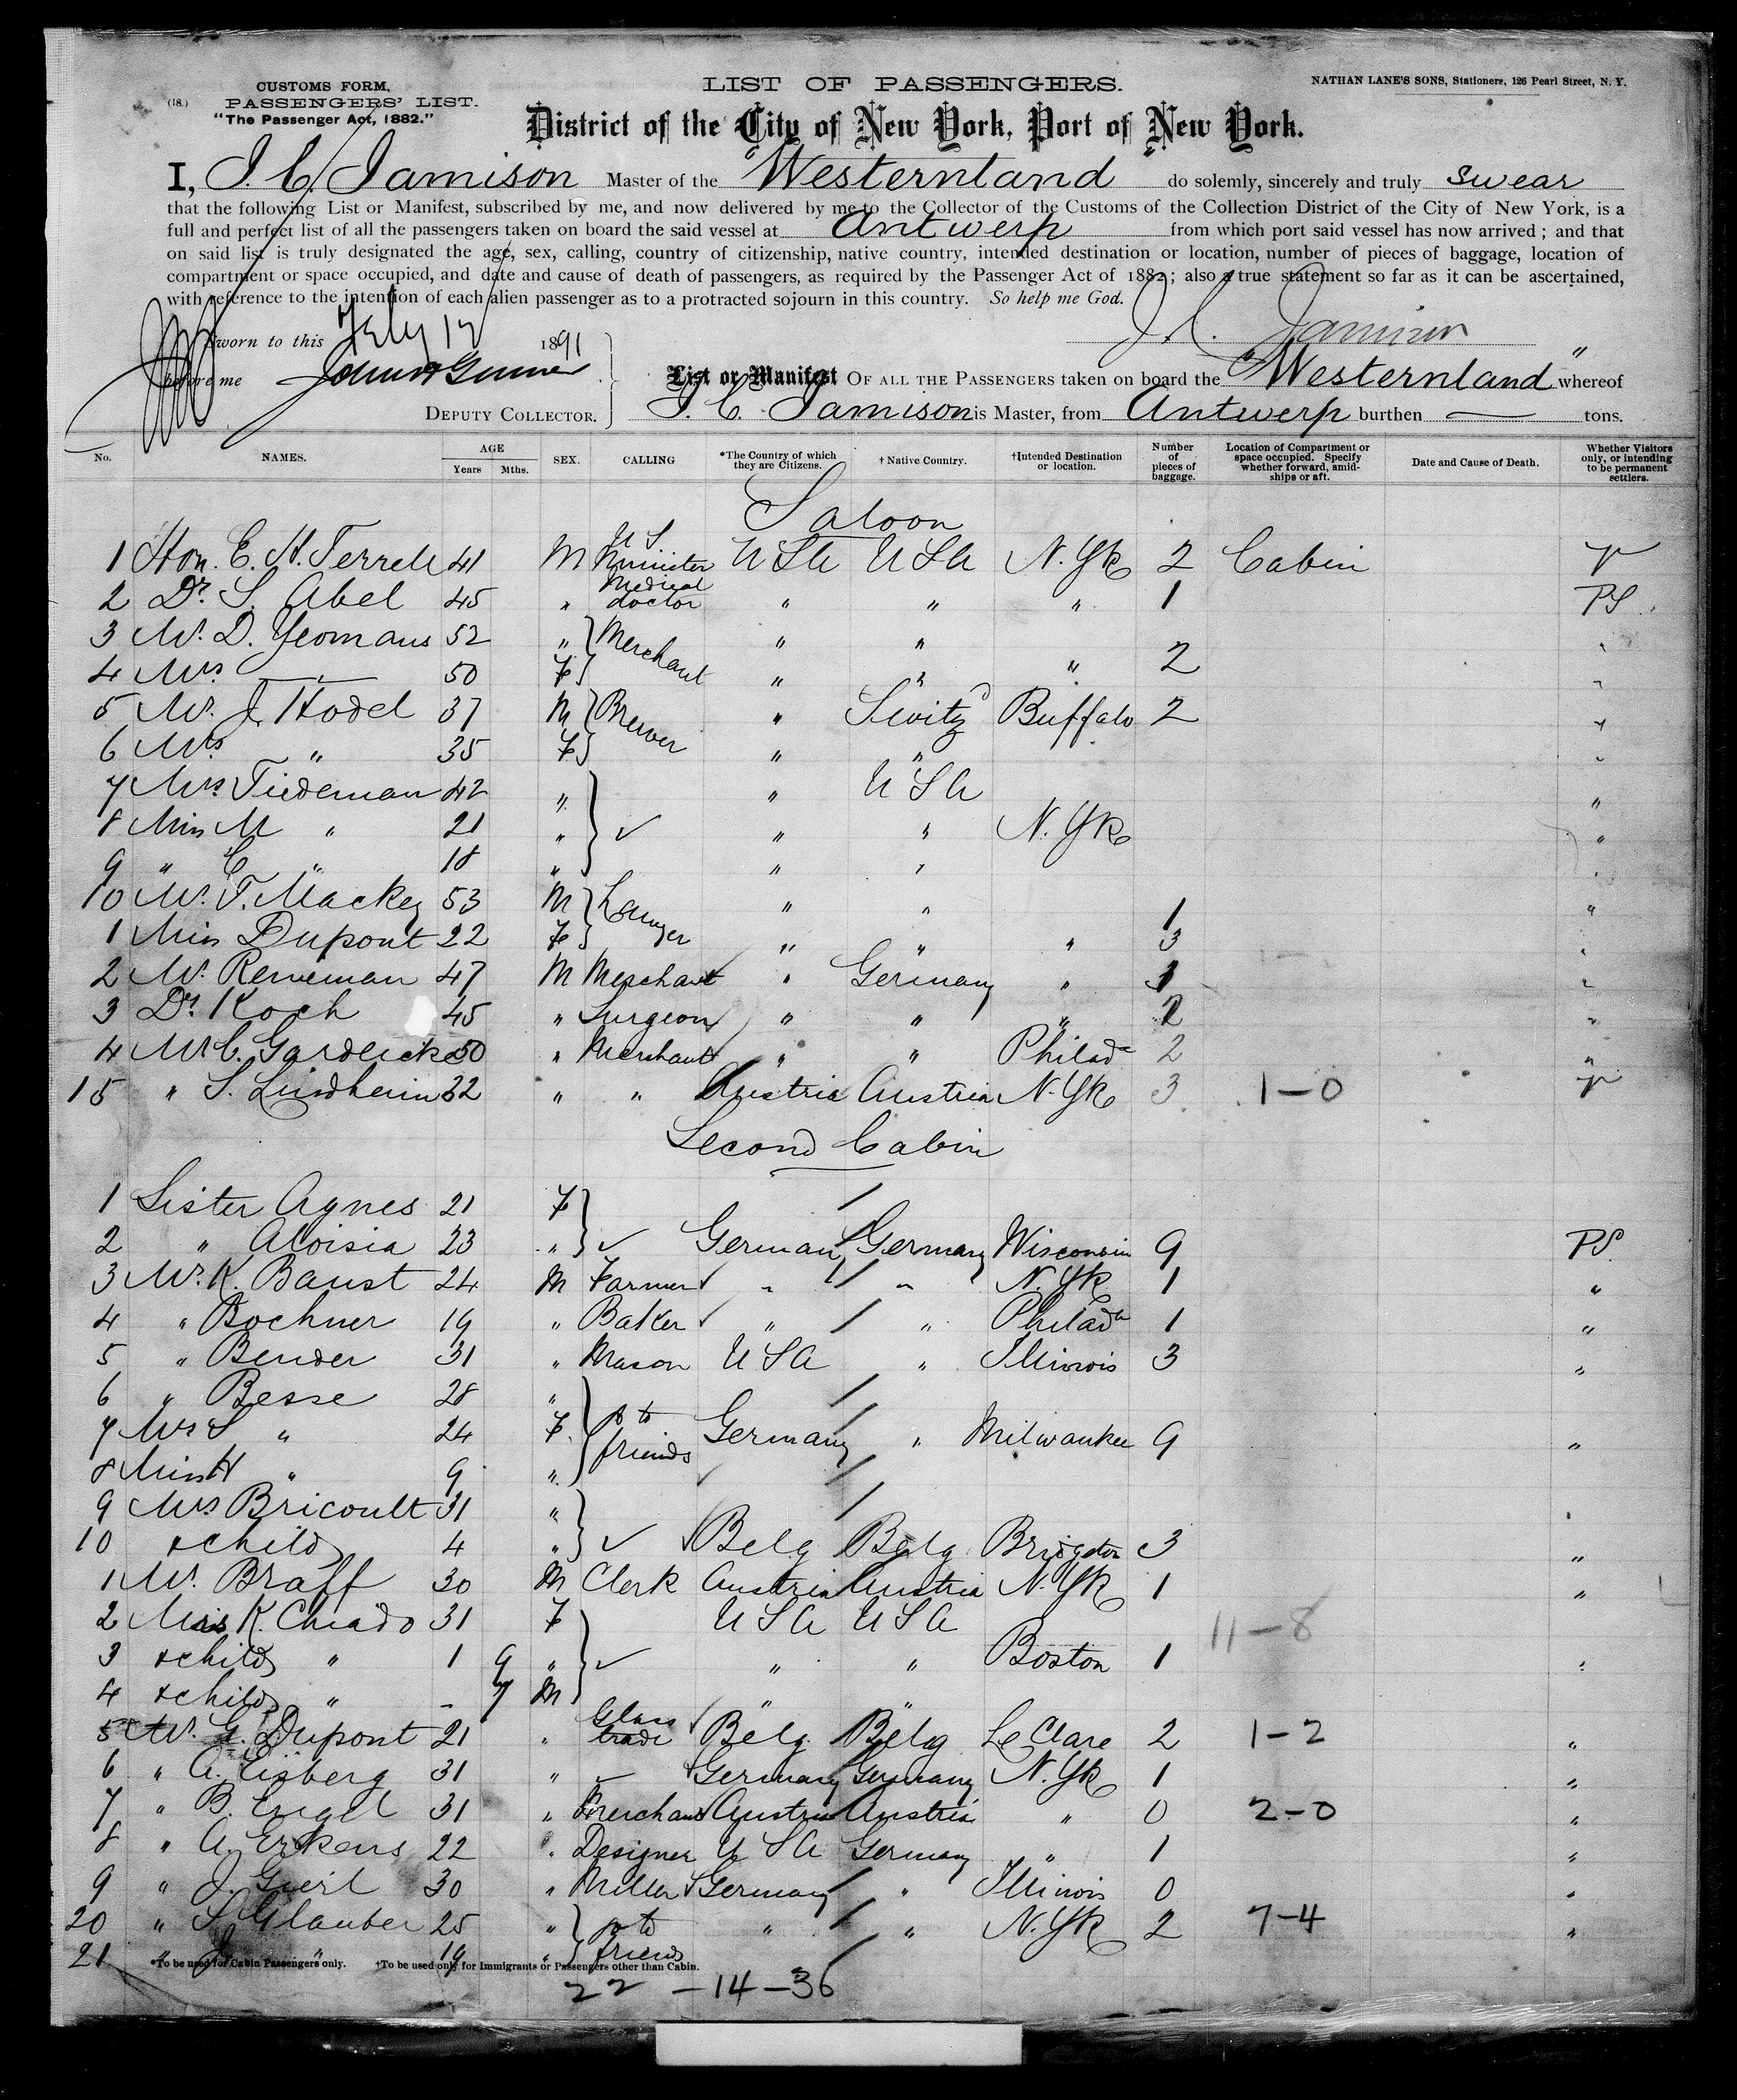 CUSTOMS FORM,
(18.) PASSENGERS' LIST.
"The Passenger Act, 1882."
LIST OF PASSENGERS.
NATHAN LANE'S SONS, Stationers, 126 Pearl Street, N. Y.
District of the City of New York, Port of New York.
I, J. C. Jamison Master of the "Westernland" do solemly, sincerely and truly swear
that the following List or Manifest, subscribed by me, and now delivered by me to the Collector of the Customs of the Collection District of the City of New York, is a
full and perfect list of all the passengers taken on board the said vessel at Antwerp from which port said vessel has now arrived; and that
on said list is truly designated the age, sex, calling, country of citizenship, native country, intended destination or location, number of pieces of baggage, location of
compartment or space occupied, and date and cause of death of passengers, as required by the Passenger Act of 1882; also a true statement so far as it can be ascertained,
with reference to the intention of each alien passenger as to a protracted sojourn in this country. So help me God.
Sworn to this 1891 J. C. Jamison
before me
List or Manifest OF ALL THE PASSENGERS taken on board the "Westernland" whereof
DEPUTY COLLECTOR. J. C. Jamison is Master, from Antwerp burthen — tons.
No. NAMES. AGE Years Mths. SEX. CALLING *The Country of which they are Citizens. † Native Country. †Intended Destination or location. Number of pieces of baggage. Location of Compartment or space occupied. Specify whether forward, amidships or aft. Date and Cause of Death. Whether Visitors only, or intending to be permanent settlers.
Saloon
1 Hon. E. H. Terrell 41 M U S Minister U S A U S A N. Yk 2 Cabin V
2 Dr. S. Abel 45 " Medical doctor " " " 1 PS
3 Mr. D. Yeomans 52 " Merchant " " "
4 Mrs — " — 50 F " " " 2 "
5 Mr. J. Hodel 37 M Brewer " Switzd Buffalo 2 "
6 Mrs " 35 F " " "
7 Mrs Tiedeman 42 " " U S A "
8 Miss M " 21 " ✓ " " N. Yk "
9 " C " 18 " " " "
10 Mr. T. Mackey 53 M Lawyer " " 1 "
1 Miss Dupont 22 F " " " 3 "
2 Mr. Reineman 47 M Merchant " Germany " "
3 Dr. Koch 45 " Surgeon " " " 2 "
4 Mr C. Gardeicke 50 " Merchant " " Philada 2 "
15 " S. Lindheim 32 " " Austria Austria N. Yk 3 1-0 V
Second Cabin
1 Sister Agnes 21 F
2 " Aloisia 23 " ✓ Germany Germany Wisconsin 9 PS
3 Mr. K. Baust 24 M Farmer " " N. Yk 1 "
4 " Bochner 19 " Baker " " Philada 1 "
5 " Bender 31 " Mason U S A " Illinois 3 "
6 " Besse 28 "
7 Mrs S " 24 F to friends Germany " Milwaukee 9 "
8 Miss H " 9 "
9 Mrs Bricoult 31 " "
10 & child 4 " ✓ Belg Belg Bridgeton 3 "
1 Mr. Braff 30 M Clerk Austria Austria N. Yk 1 "
2 Mrs K. Chiado 31 F U S A U S A 11-8
3 & child " 1 9 " ✓ " " Boston 1 "
4 & child " - 7 M
5 Mr. G. Dupont 21 " Glass trade Belg. Belg Le Clare 2 1-2 "
6 " A. Eisberg 31 " ✓ Germany Germany N. Yk 1 "
7 " B. Engel 31 " Merchant Austria Austria " 0 2-0 "
8 " A. Erkens 22 " Designer U S A Germany " 1 "
9 " J. Gierl 30 " Miller Germany " Illinois 0 "
20 " S. Glauber 25 " to friends " " N. Yk 2 7-4 "
21 " J. " 19 "
*To be used for Cabin Passengers only. †To be used only for Immigrants or Passengers other than Cabin.
22 - 14 - 36